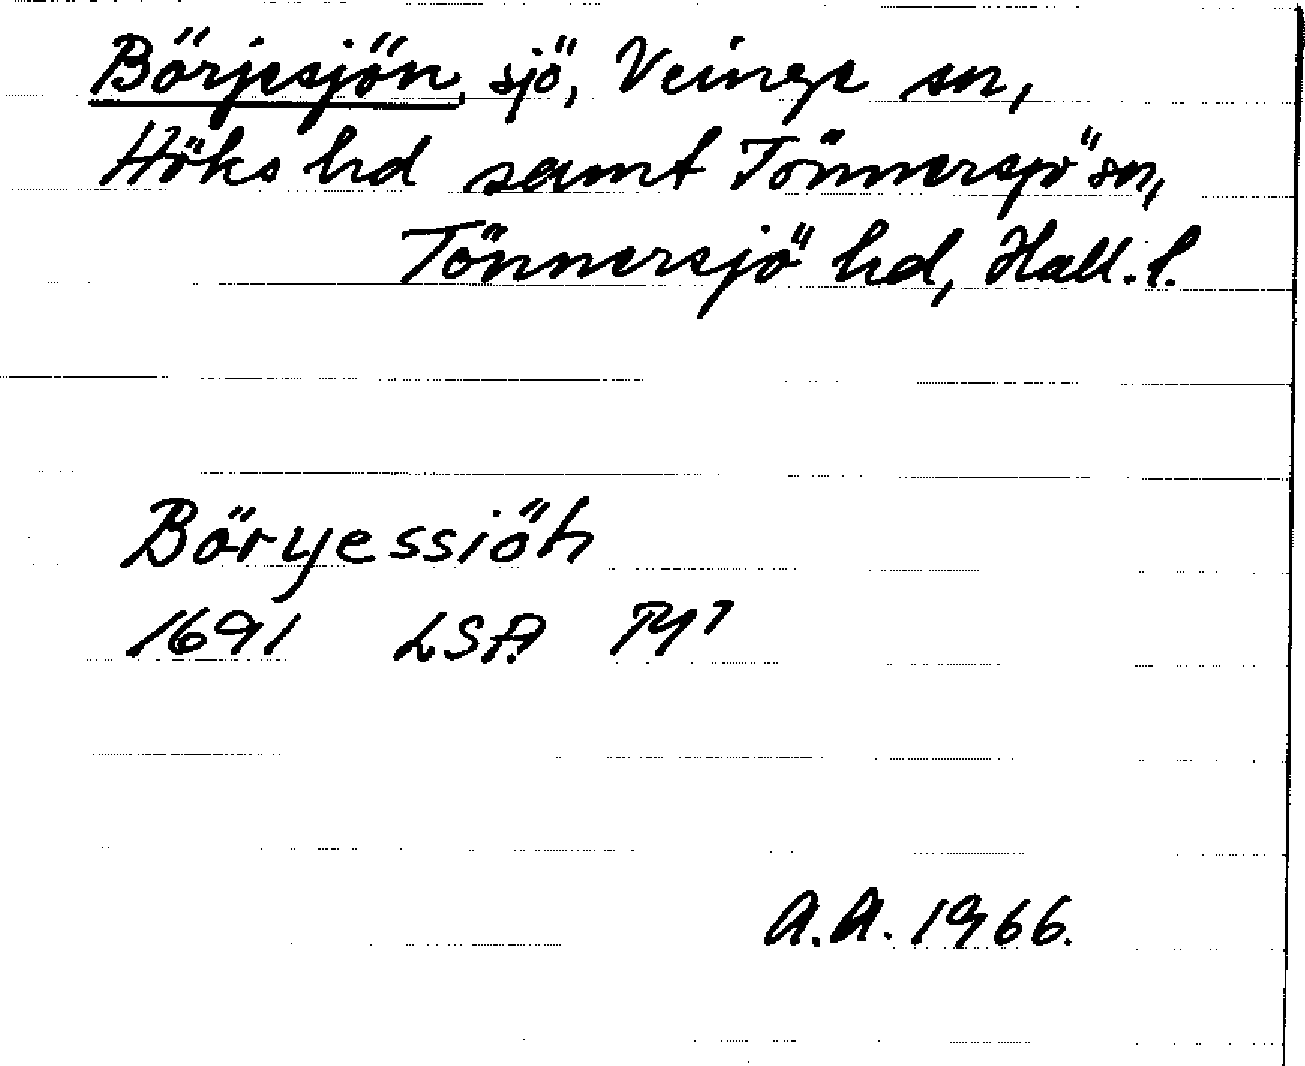 Börjesjön, sjö, Veinge sn,
Höks hd samt Tönnersjö sn,
Tönnersjö hd, Hall. l.
Böryessiöh
1691 LSA
A.A. 1966.